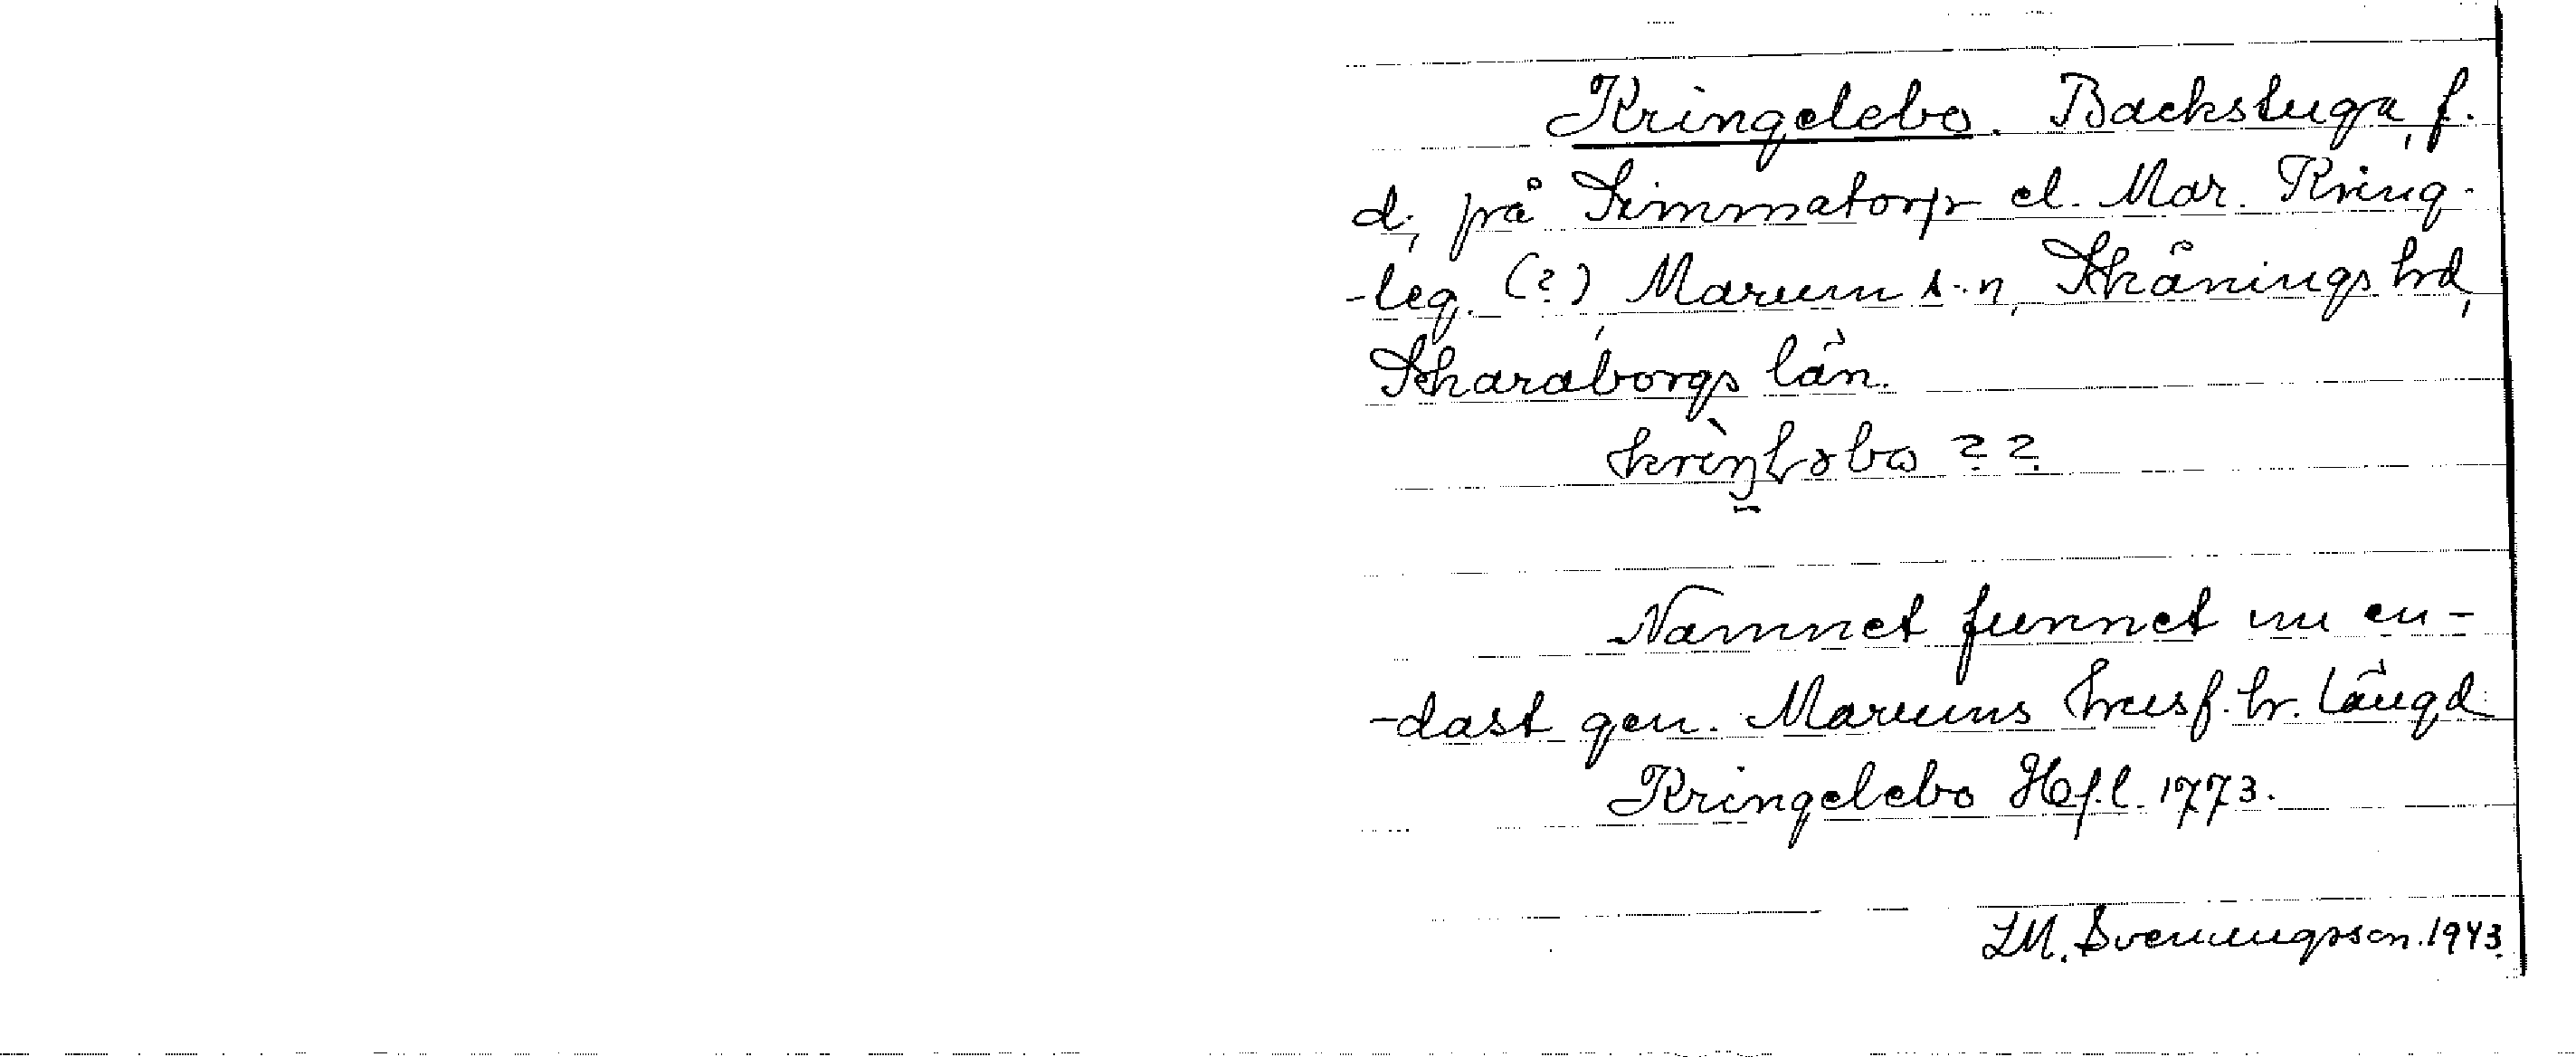 Kringelebo. Backstuga, f.
d., på Simmatorp el. Mar. Kring-
-leg. (?) Marum s-n, Skånings hd,
Skaraborgs län.
??
Namnet funnet nu en-
-dast gen. Marums husf. hr. längd
Kringelebo Hfl. 1773.
LM. Svenningsson. 1943.